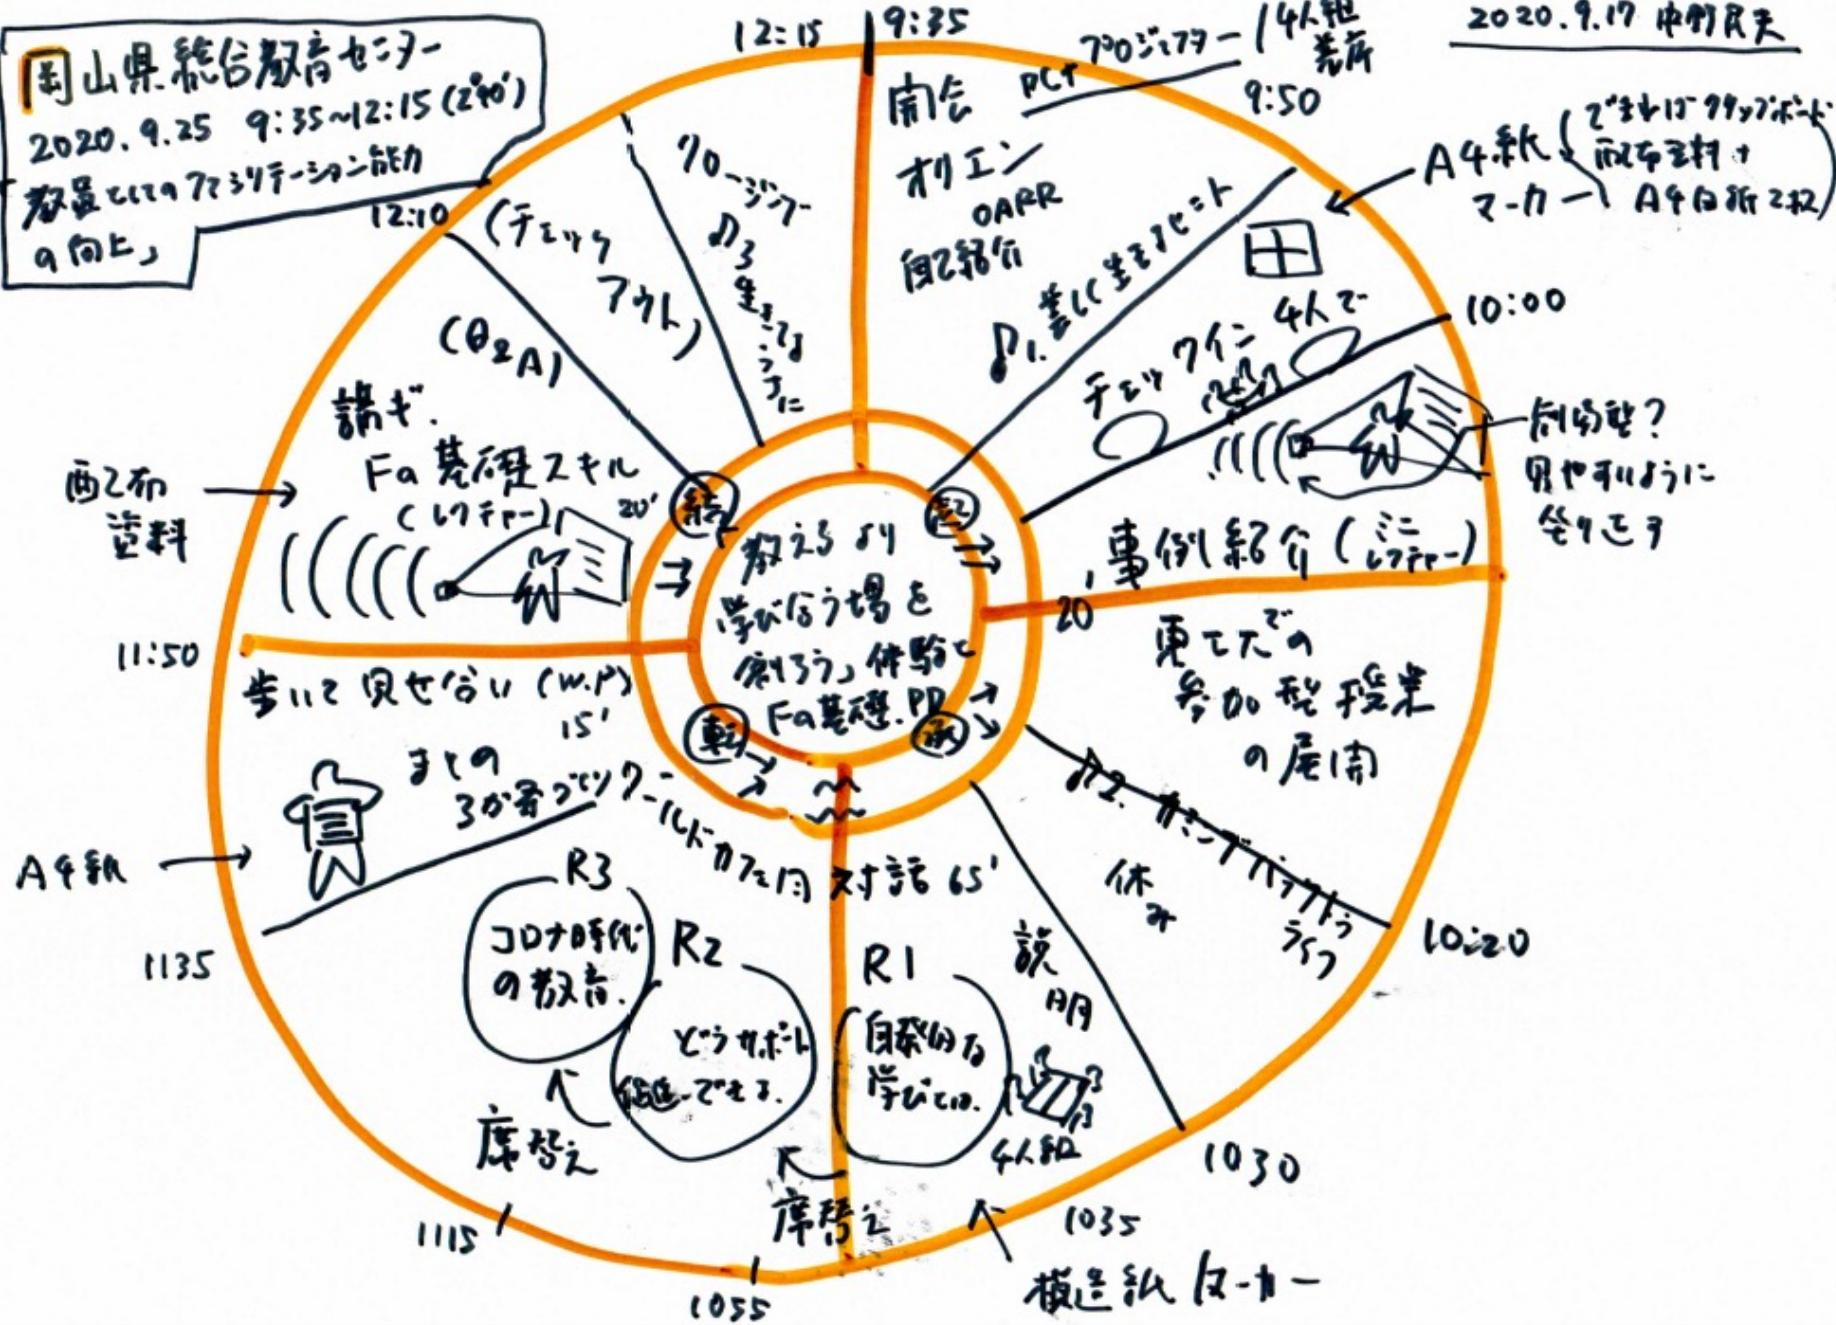 岡山県総合教育センター
2020.9.25 9:35~12:15 (2°40')
教員としてのファシリテーション能力
の向上」
2020.9.17 中野民夫
12:15
9:35
PC+プロジェクター
4人組
着席
9:50
開会
オリエン
OARR
自己紹介
♪1. 楽しく生きるヒント
A4紙
マーカー
できればクリップボード
配布資料+
A4白紙2枚
チェックイン 4人で
10:00
劇場型?
見やすいように
事例紹介(ミニ
レクチャー)
20'
東工大での
参加型授業
の展開
10:20
♪2. カミングバックトゥ
ライフ
休み
1030
説明
4人組
1035
模造紙 マーカー
ワールドカフェ的対話 65'
R1
自発的な
学びとは.
席替え
1055
R2
どうサポート
促進できる.
席替え
1115
R3
コロナ時代
の教育.
1135
A4紙
まとめ
3か条づくり
歩いて見せ合い (W.P)
15'
11:50
配布
資料
講ギ.
Fa基礎スキル
(レクチャー) 20'
(Q&A)
12:10
(チェック
アウト)
クロージング
♪3
生きてる
うちに
起
承
転
結
教えるより
学び合う場を
創ろう」体験と
Fa基礎.